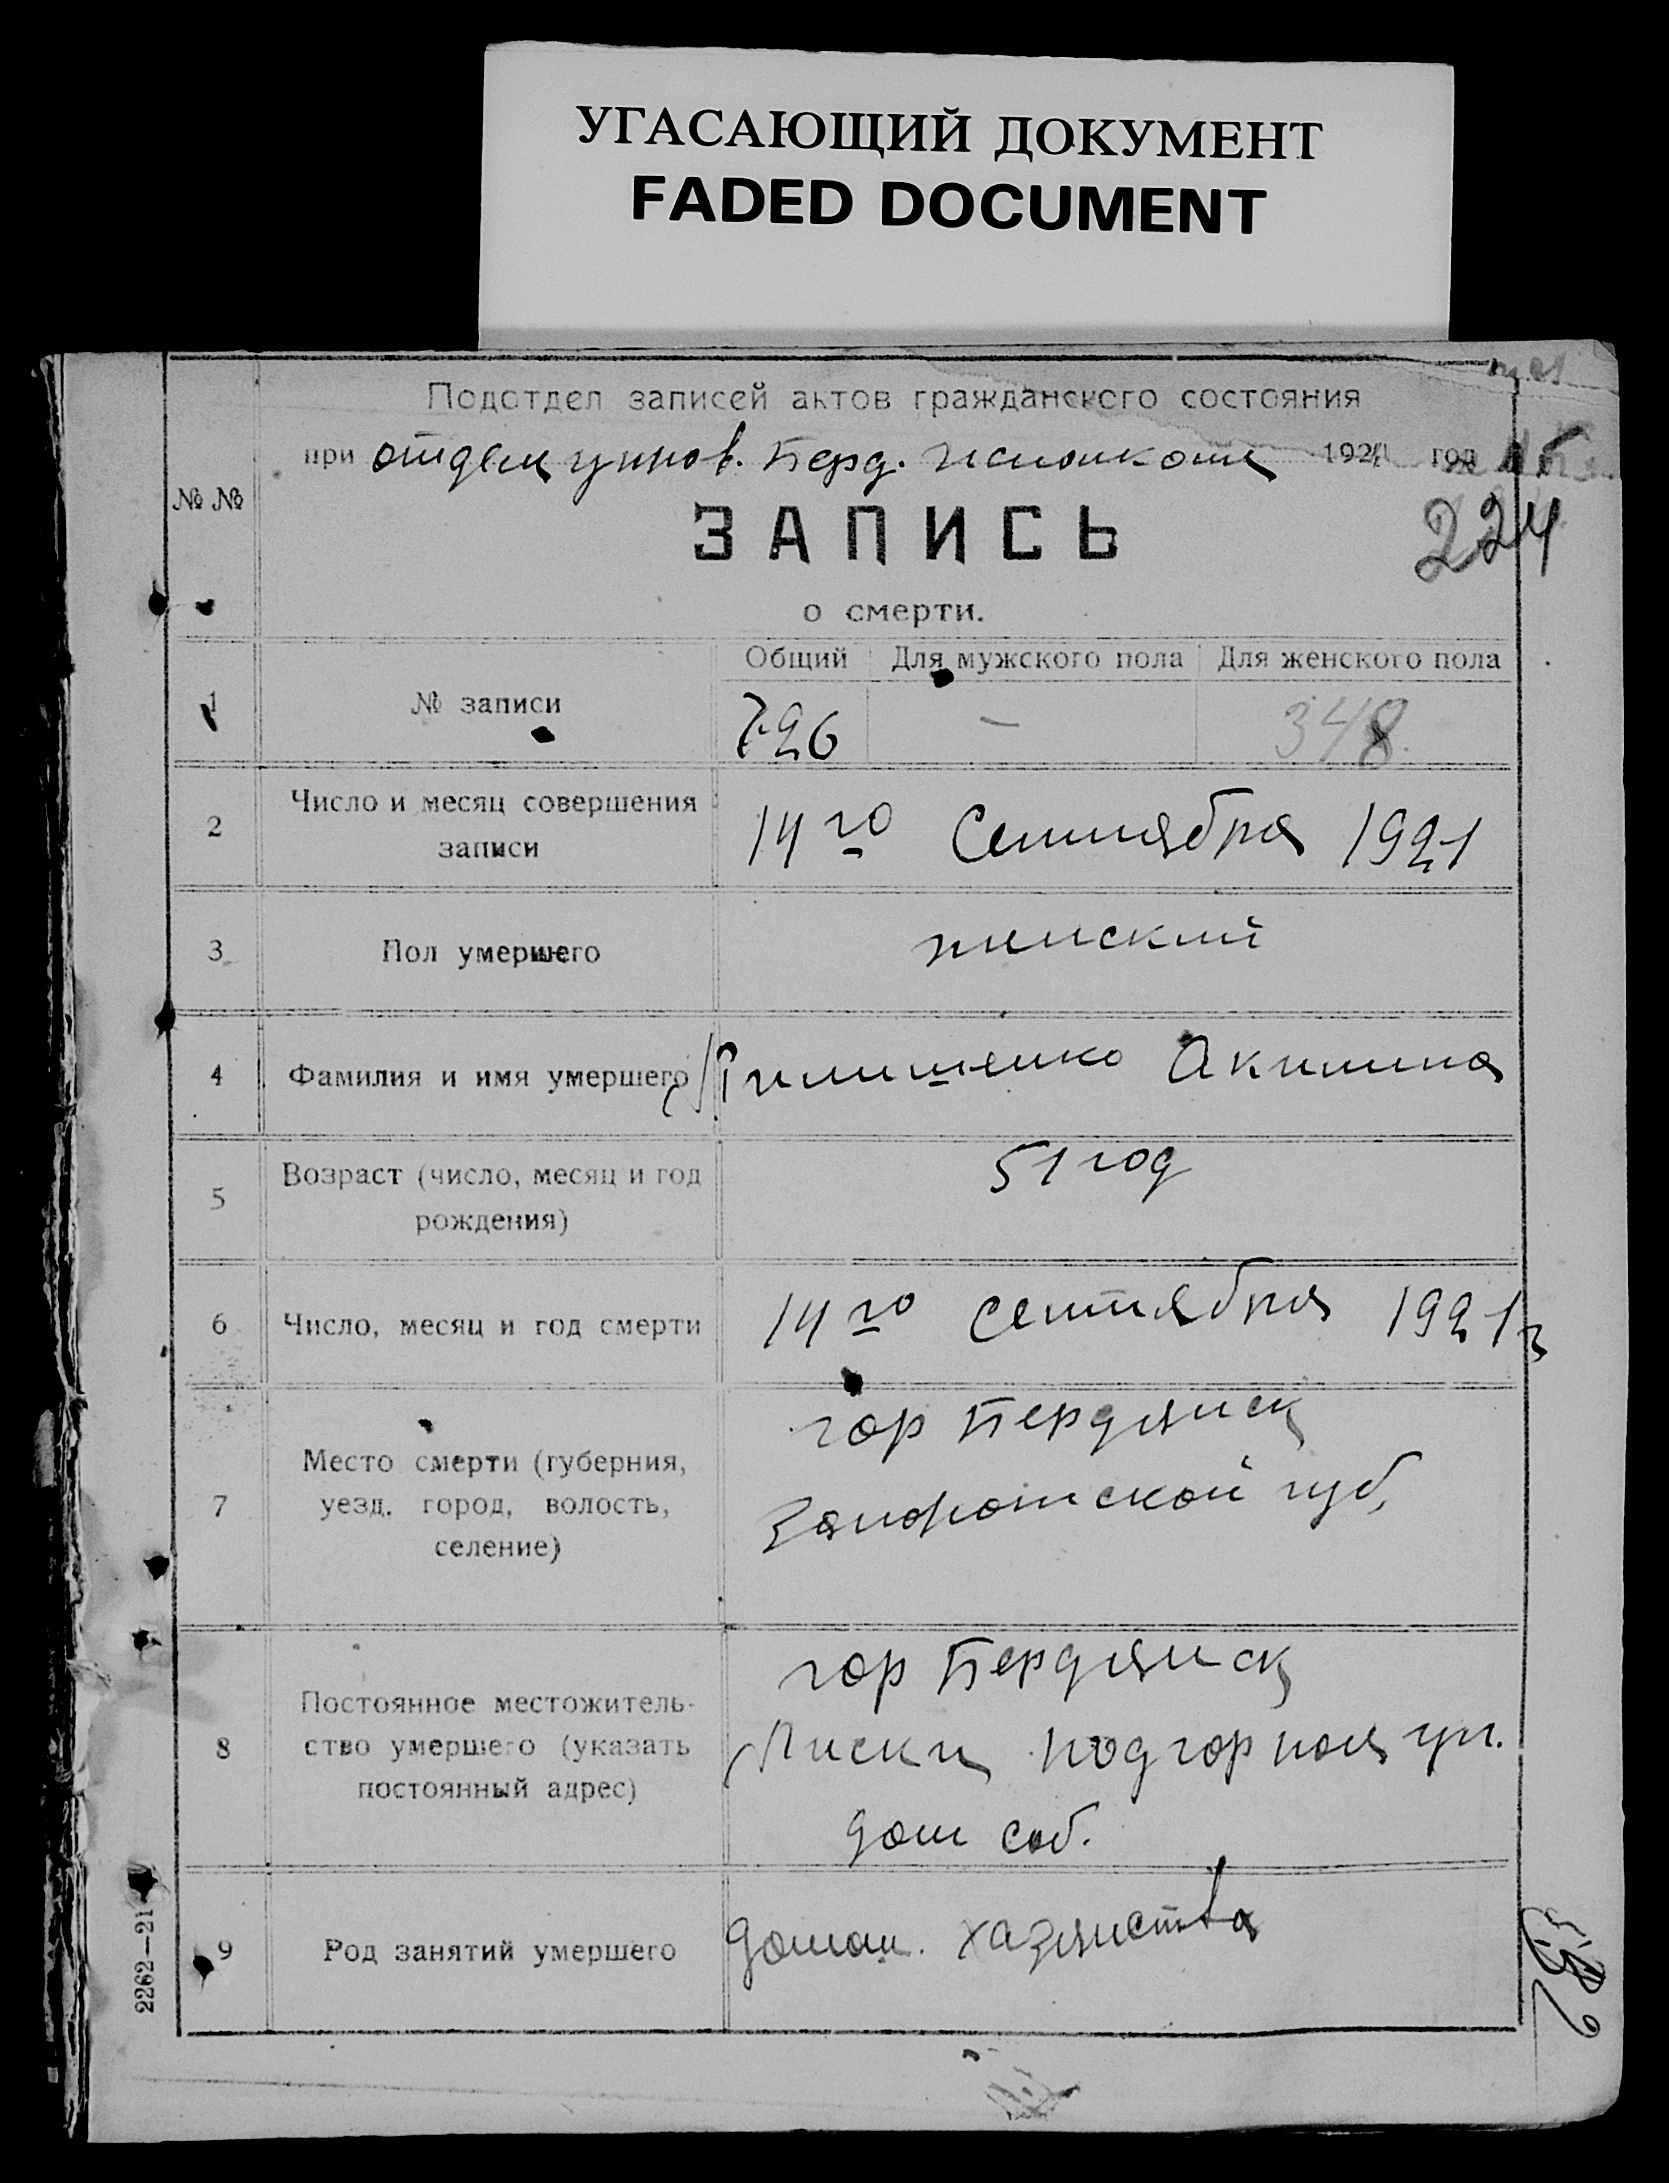 УГАСАЮЩИЙ ДОКУМЕНТ
FADED DOCUMENT
Подотдел записей актов гражданского состояния
при отделе управ. Берд. исполкома 1921 год
224
№ №
ЗАПИСЬ
о смерти.
Общий Для мужского пола Для женского пола
1 № записи 726 — 348
2 Число и месяц совершения
записи
14го Сентября 1921
3 Пол умершего женский
4 Фамилия и имя умершего Акилина
5 Возраст (число, месяц и год
рождения)
51 год
6 Число, месяц и год смерти 14го сентября 1921 г
7 Место смерти (губерния,
уезд, город, волость,
селение)
гор Бердянск
Запорожской губ.
8 Постоянное местожитель-
ство умершего (указать
постоянный адрес)
гор Бердянск
Лиски подгорная ул.
дом соб.
9 Род занятий умершего домаш. хазяйства
2262—21